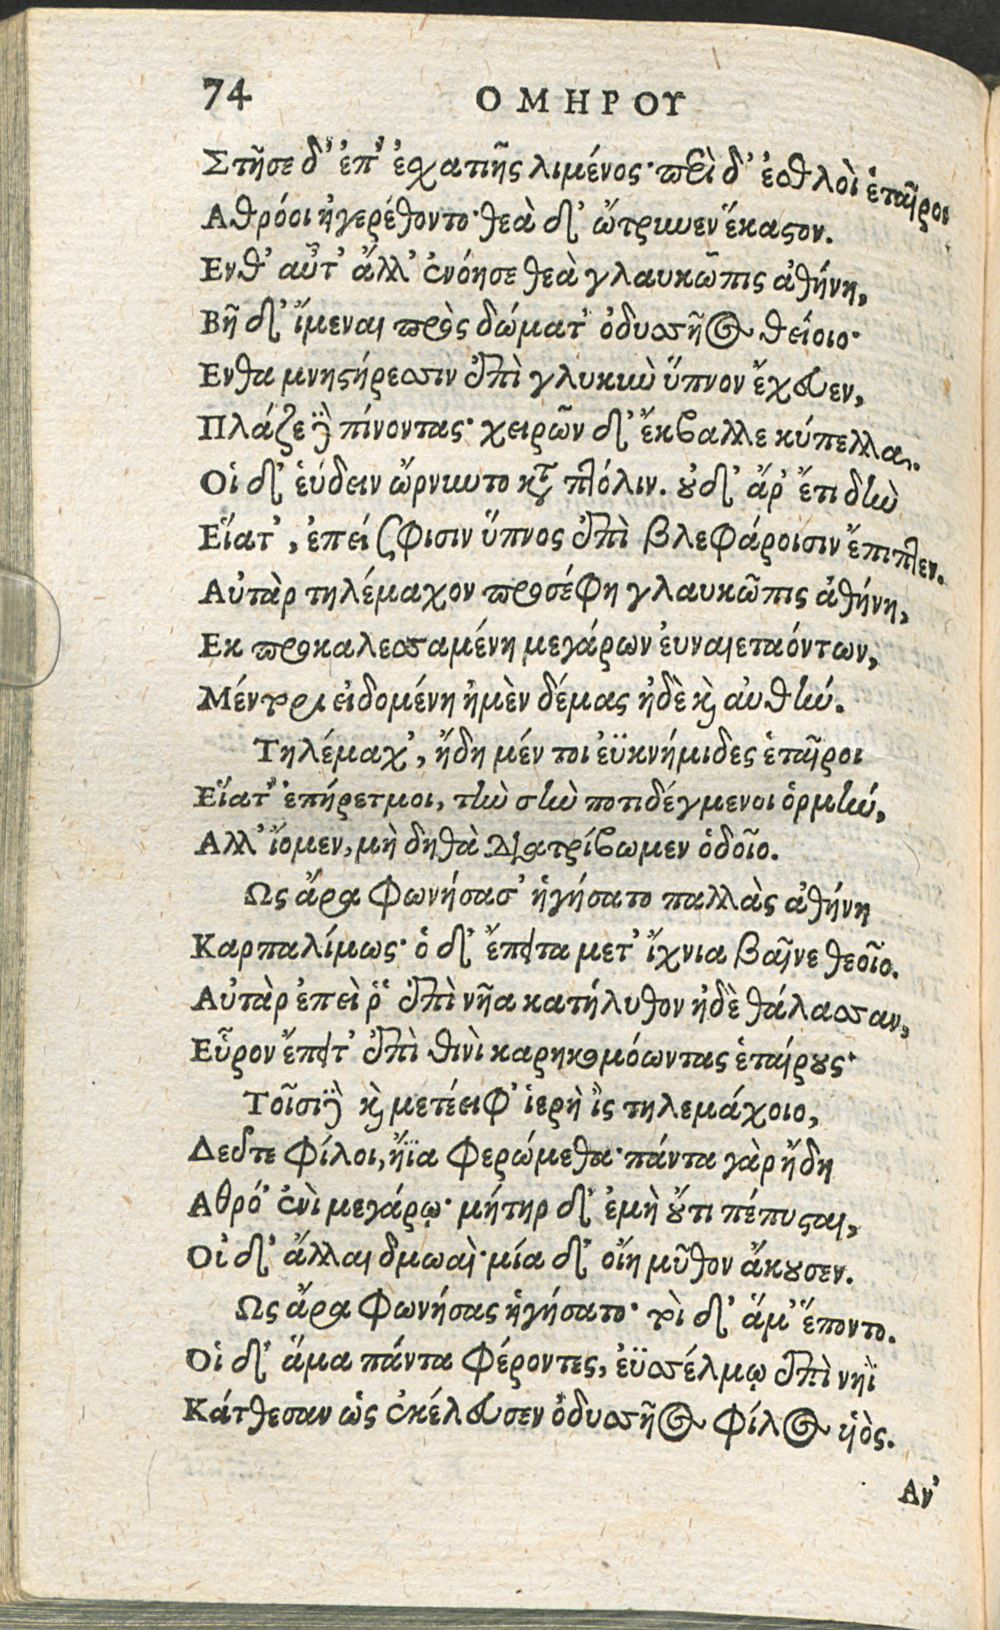 74 ΟΜΗΡΟΥ
Στῆσε δ' ἐπ' ἐσχατιῆς λιμένος· περὶ δ' ἐσθλοὶ ἑταῖροι
Αθρόοι ἠγερέθοντο· θεὰ δ' ὤτρυνεν ἕκαστον.
Ενθ' αὖτ' ἄλλ' ἐνόησε θεὰ γλαυκῶπις ἀθήνη,
Βῆ δ' ἴμεναι πρὸς δώματ' ὀδυσσῆος θείοιο·
Ενθα μνηστήρεσσιν ἐπὶ γλυκιὺ ὕπνον ἔχευεν,
Πλάζε δὲ πίνοντας· χειρῶν δ' ἔκβαλλε κύπελλα.
Οἱ δ' ἑύδειν ὤρνυντο κατὰ πτόλιν. οὐδ' ἄρ' ἔτι δὴν
Εἵατ', ἐπεί σφισιν ὕπνος ἐπὶ βλεφάροισιν ἔπιπτεν.
Αὐτὰρ τηλέμαχον προσέφη γλαυκῶπις ἀθήνη,
Εκ προκαλεσσαμένη μεγάρων ἐυναιεταόντων,
Μέντορι εἰδομένη ἠμὲν δέμας ἠδὲ καὶ αὐδήν.
Τηλέμαχ', ἤδη μέν τοι ἐϋκνήμιδες ἑταῖροι
Εἵατ' ἐπήρετμοι, τὴν σὴν ποτιδέγμενοι ὁρμήν,
Αλλ' ἴομεν, μὴ δηθὰ διατρίβωμεν ὁδοῖο.
Ως ἄρα φωνήσασ' ἡγήσατο παλλὰς ἀθήνη
Καρπαλίμως· ὁ δ' ἔπειτα μετ' ἴχνια βαῖνε θεοῖο.
Αὐτὰρ ἐπεὶ ῥ' ἐπὶ νῆα κατήλυθον ἠδὲ θάλασσαν,
Εὗρον ἔπειτ' ἐπὶ θινὶ καρηκομόωντας ἑταίρους·
Τοῖσι δὲ καὶ μετέειφ' ἱερὴ ἲς τηλεμάχοιο,
Δεῦτε φίλοι, ἤϊα φερώμεθα· πάντα γὰρ ἤδη
Αθρό' ἐνὶ μεγάρῳ· μήτηρ δ' ἐμὴ οὔτι πέπυσται,
Οὐδ' ἄλλαι δμωαὶ· μία δ' οἴη μῦθον ἄκουσεν.
Ως ἄρα φωνήσας ἡγήσατο· τοὶ δ' ἅμ' ἕποντο.
Οἱ δ' ἅμα πάντα φέροντες, ἐϋσσέλμῳ ἐπὶ νηῒ
Κάτθεσαν ὡς ἐκέλευσεν ὀδυσσῆος φίλος υἱὸς.
Αν'